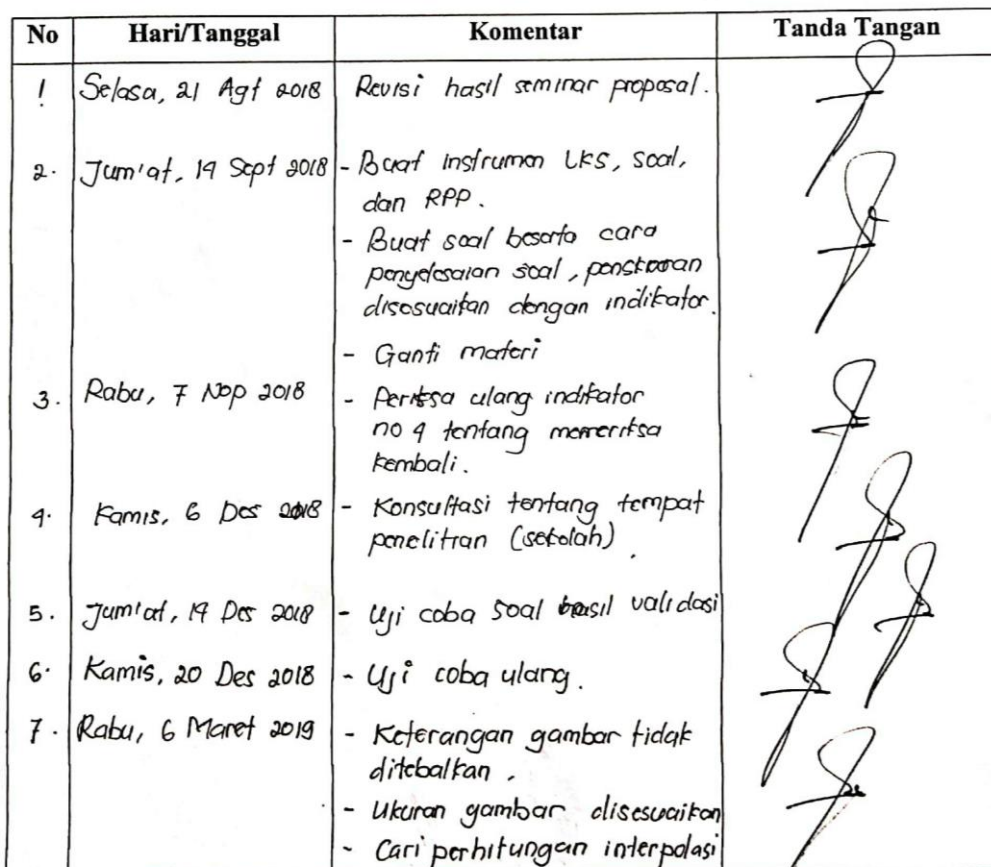 No Hari/Tanggal Komentar Tanda Tangan
1 Selasa, 21 Agt 2018 Revisi hasil seminar proposal.
2. Jum'at, 14 Sept 2018 - Buat instrumen LKS, soal,
dan RPP.
- Buat soal beserta cara
penyelesaian soal, penskoran
disesuaikan dengan indikator.
- Ganti materi
3. Rabu, 7 Nop 2018 - Periksa ulang indikator
no 4 tentang memeriksa
kembali.
4. Kamis, 6 Des 2018 - Konsultasi tentang tempat
penelitian (sekolah).
5. Jum'at, 14 Des 2018 - Uji coba soal hasil validasi
6. Kamis, 20 Des 2018 - Uji coba ulang.
7. Rabu, 6 Maret 2019 - Keterangan gambar tidak
ditebalkan.
- Ukuran gambar disesuaikan
- Cari perhitungan interpolasi